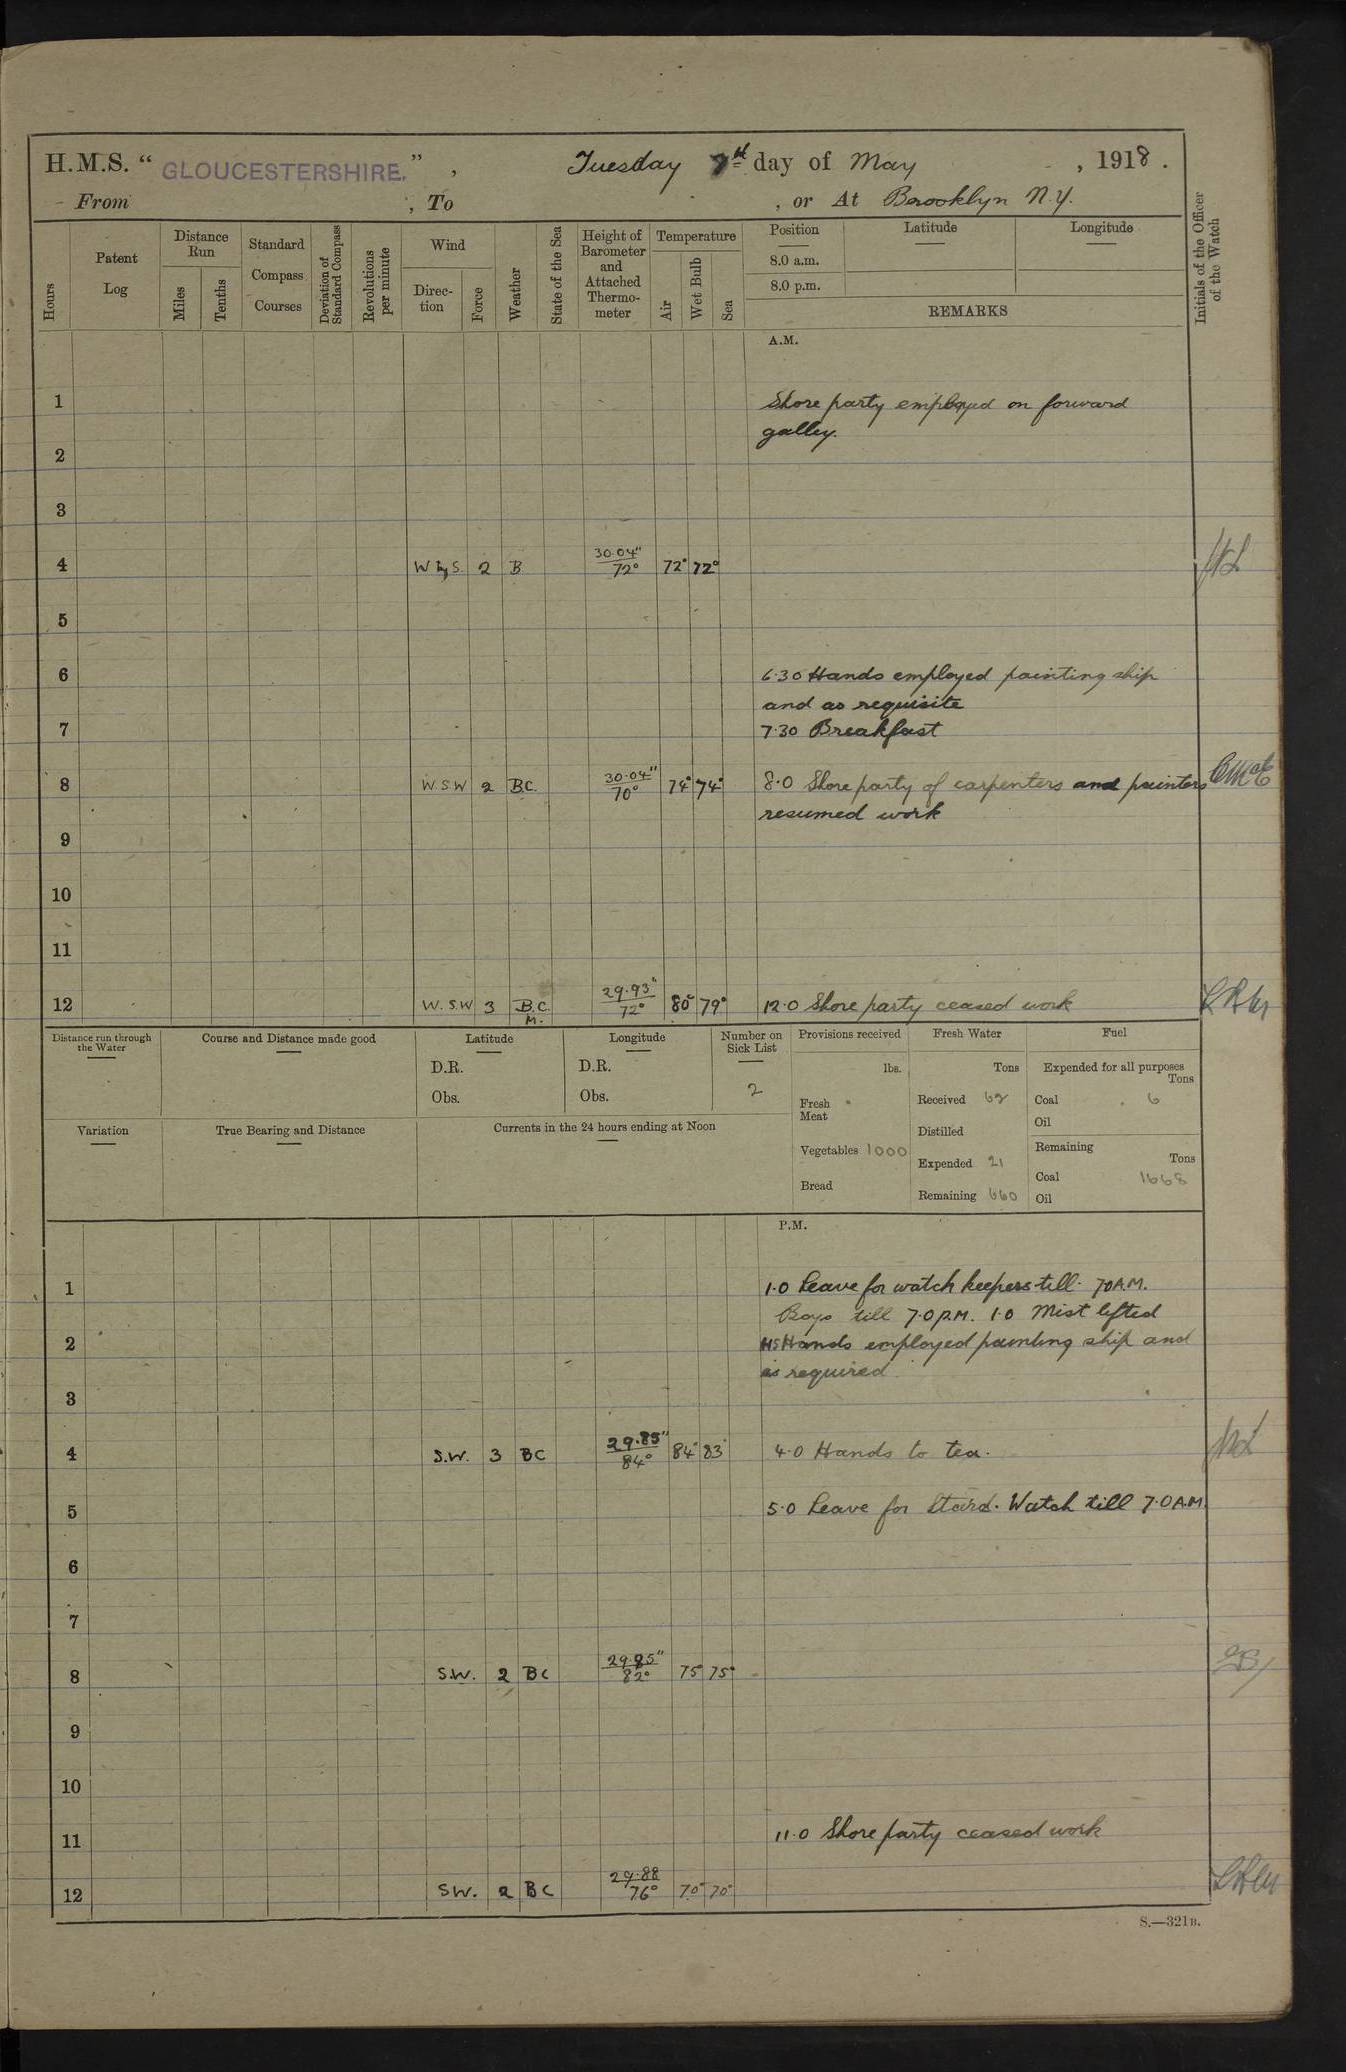 H.M.S. “ GLOUCESTERSHIRE. ” , Tuesday 7th day of May , 1918 .
From , To , or At Brooklyn N.Y.
Hours
Patent Log
Distance Run
Miles
Tenths
Standard Compass Courses
Deviation of Standard Compass
Revolutions per minute
Wind
Direction
Force
Weather
State of the Sea
Height of Barometer and Attached Thermometer
Temperature
Air
Wet Bulb
Sea
Position
8.0 a.m.
8.0 p.m.
Latitude
Longitude
REMARKS
Initials of the Officer of the Watch
A.M.
1 Shore party employed on forward
galley.
2
3
4 W by S. 2 B 30.04" 72° 72° 72°
5
6 6.30 Hands employed painting ship
and as requisite
7 7.30 Breakfast
8 W.S.W 2 BC. 30.04" 70° 74° 74° 8.0 Shore party of carpenters and painters
resumed work
9
10
11
12 W.S.W 3 B.C. M. 29.93" 72° 80° 79° 12.0 Shore party ceased work
Distance run through the Water
Course and Distance made good
Latitude
D.R.
Obs.
Longitude
D.R.
Obs.
Number on Sick List
2
Variation
True Bearing and Distance
Currents in the 24 hours ending at Noon
Provisions received
lbs.
Fresh Meat
Vegetables 1000
Bread
Fresh Water
Tons
Received 62
Distilled
Expended 21
Remaining 660
Fuel
Expended for all purposes
Tons
Coal 6
Oil
Remaining
Tons
Coal 1668
Oil
P.M.
1 1.0 Leave for watch keepers till 7.0 A.M.
Boys till 7.0 P.M. 1.0 Mist lifted
2 Hands employed painting ship and
as required
3
4 S.W. 3 BC 29.85" 84° 84° 83° 4.0 Hands to tea.
5 5.0 Leave for Stard. Watch till 7.0 A.M.
6
7
8 S.W. 2 BC 29.85" 82° 75° 75°
9
10
11 11.0 Shore party ceased work
12 SW. 2 BC 29.88 76° 70° 70°
S.—321B.